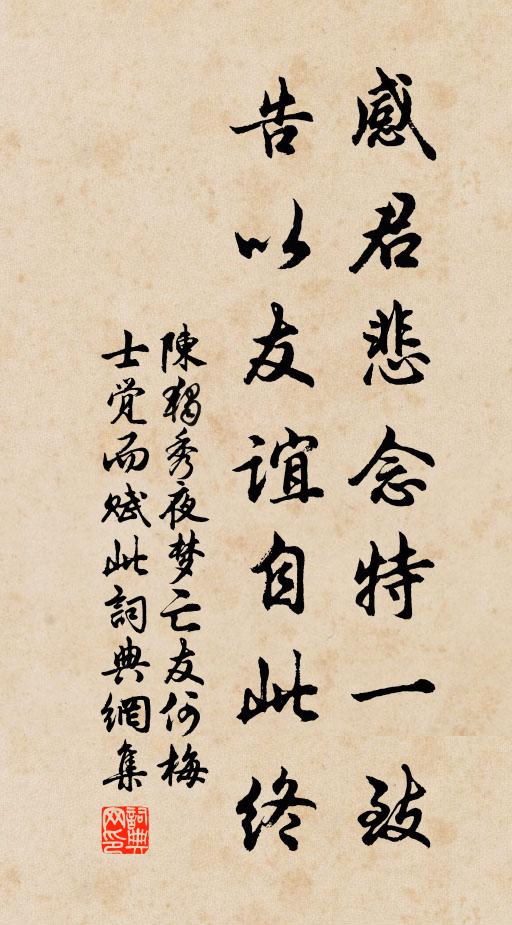 感君悲念特一致
告以友谊自此终
陳獨秀夜梦亡友何梅
士覚而赋此詞典網集
詞典
网印